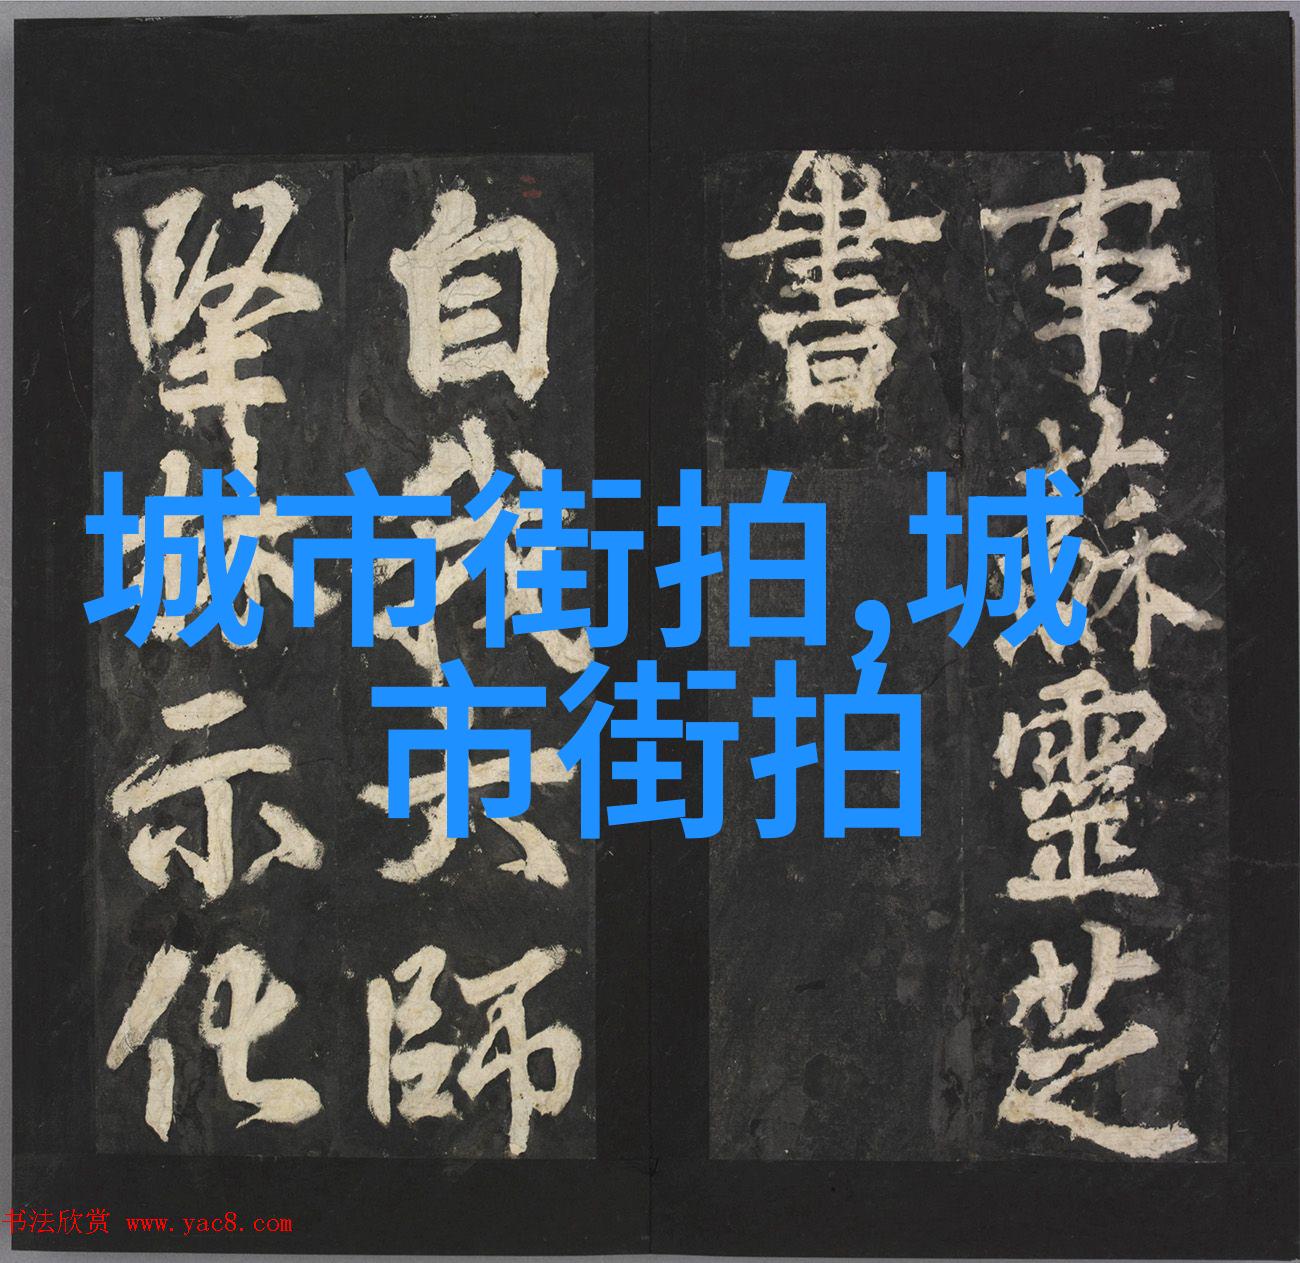 事蘇靈芝
書
自我大師
堅林示化
城市街拍,城
市街拍
书法欣赏 www.yac8.com